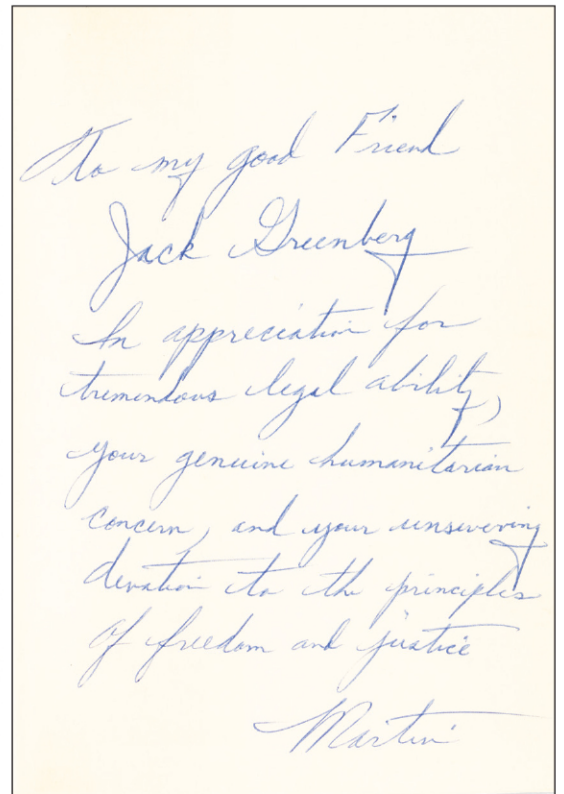 To my good Friend
Jack Greenberg
In appreciation for
tremendous legal ability,
your genuine humanitarian
concern, and your unswerving
devotion to the principles
of freedom and justice
Martin